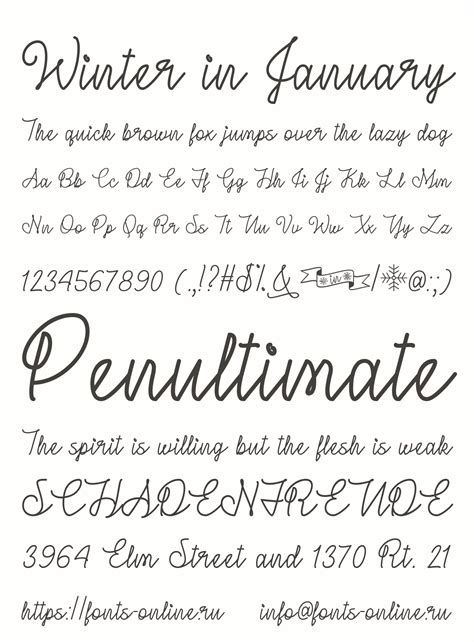 Winter in January
The quick brown fox jumps over the lazy dog
Aa Bb Cc Dd Ee Ff Gg Hh Ii Jj Kk Ll Mm
Nn Oo Pp Qq Rr Ss Tt Uu Vv Ww Xx Yy Zz
1234567890 (.,!?#$%& in /*@:;)
Penultimate
The spirit is willing but the flesh is weak
SCHADENFREUDE
3964 Elm Street and 1370 Rt. 21
https://fonts-online.ru info@fonts-online.ru